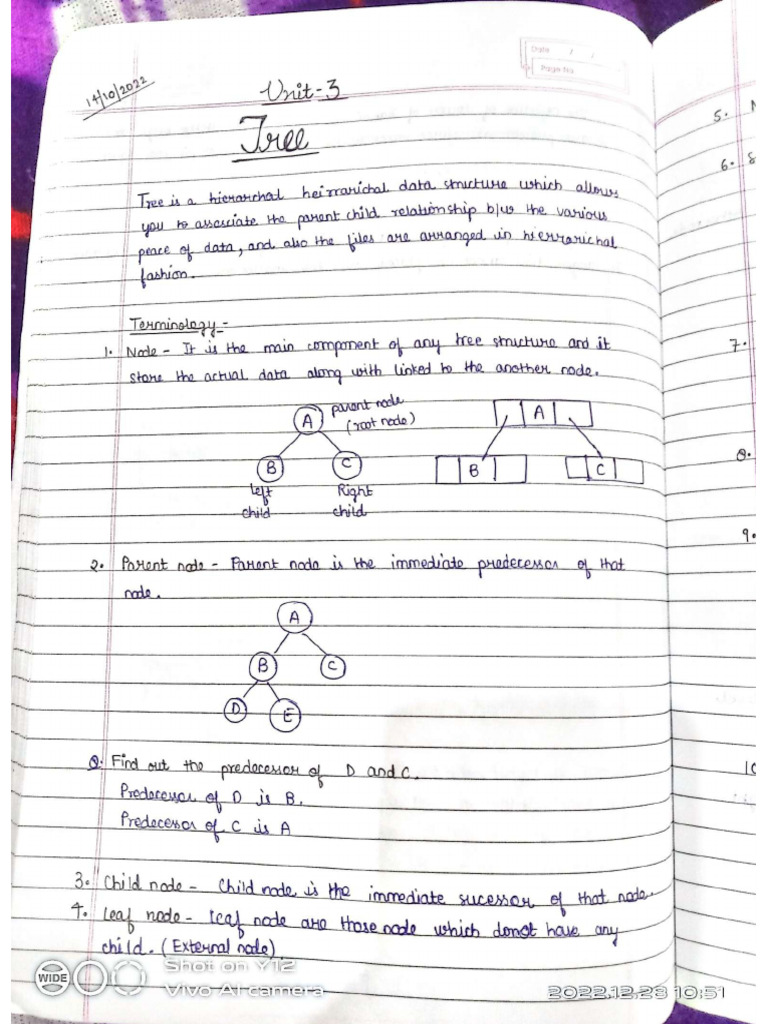 Date / /
Page No.
14/10/2022
Unit-3
Tree
Tree is a hierarchal heirrarichal data structure which allows
you to associate the parent child relationship b/w the various
peace of data, and also the files are arranged in hierrarichal
fashion.
Terminology -
1. Node - It is the main component of any tree structure and it
store the actual data along with linked to the another node.
A parent node
(root node)
B C
Left Right
child child
A
B C
2. Parent node - Parent node is the immediate predecessor of that
node.
A
B C
D E
Q. Find out the predecessor of D and C.
Predecessor of D is B.
Predecessor of C is A
3. Child node - Child node is the immediate sucessor of that node.
4. Leaf node - Leaf node are those node which donot have any
child. (External node).
5.
6.
7.
8.
9.
10
WIDE
Shot on Y12
Vivo AI camera
2022.12.23 10:51